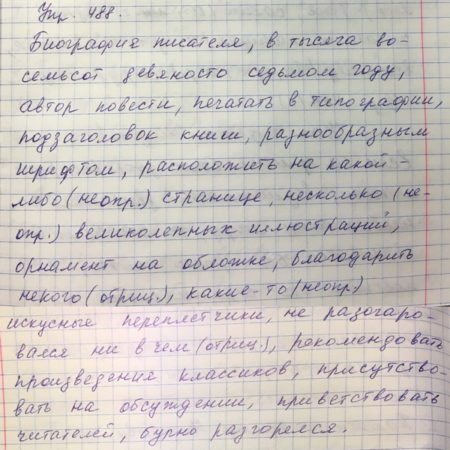 Упр. 488.
Биография писателя, в тысяча во-
семьсот девяносто седьмом году,
автор повести, печатать в типографии,
подзаголовок книги, разнообразным
шрифтом, расположить на какой-
либо (неопр.) странице, несколько (не-
опр.) великолепных иллюстраций,
орнамент на обложке, благодарить
некого (отриц.), какие-то (неопр)
искусные переплетчики, не разочаро-
вался ни в чем (отриц.), рекомендовать
произведения классиков, присутство-
вать на обсуждении, приветствовать
читателей, бурно разгорелся.